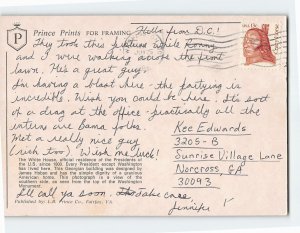 P
Prince Prints FOR FRAMING
Hello from D.C.!
USA 13c
They took this picture while Ronny
and I were walking across the front
lawn. He's a great guy.
I'm having a blast here - the partying is
incredible. Wish you could be here. It's sort
of a drag at the office - practically all the
interns are Bama folks.
Met a really nice guy
(rich too) Wish me luck!
The White House, official residence of the Presidents of
the U.S. since 1800. Every President except Washington
has lived here. This Georgian building was designed by
James Hoban and has the simple dignity of a gracious
American home. This photograph is a view of the
southern side, as seen from the top of the Washington
Monument.
I'll call ya soon. Take care,
Jennifer
Published by: L.B. Prince Co., Fairfax, VA.
Kee Edwards
3205-B
Sunrise Village Lane
Norcross, GA
30093